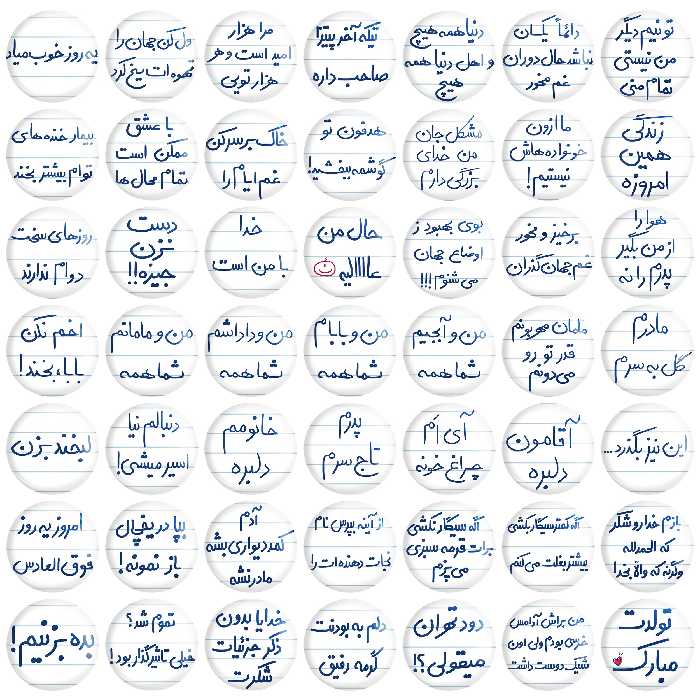 تو نیم دیگر
من نیستی
تمام منی
دائماً یکسان
نباشد حال دوران
غم مخور
دنیا همه هیچ
و اهل دنیا همه
هیچ
تیکه آخر پیتزا
صاحب داره
مرا هزار
امید است و هر
هزار تویی
ول کن جهان را
قهوه ات یخ کرد
یه روز خوب میاد
زندگی
همین
امروزه
ما ازون
خونواده هاش
نیستیم!
مشکل جان
من خدای
بزرگی دارم
هدفون تو
گوشمه بنفشید!
خاک بر سر کن
غم ایام را
با عشق
ممکن است
تمام محال ها
بیمار خنده های
توام بیشتر بخند
هوا را
از من بگیر
پدرم را نه
برخیز و مخور
غم جهان گذران
بوی بهبود ز
اوضاع جهان
می شنوم!!!
حال من
عااااالیه
خدا
با من است
دست
نزن
جیزه!!
روزهای سخت
دوام ندارند
مادرم
گل به سرم
مامان مهربونم
قدر تو رو
می‌دونم
من و آبجیم
شما همه
من و بابام
شما همه
من و داداشم
شما همه
من و مامانم
شما همه
اخم نکن
باباء بخند!
این نیز بگذرد...
آقامون
دلبره
آی اَم
چراغ خونه
پدرم
تاج سرم
خانومم
دلبره
دنبالم نیا
اسیر میشی!
لبخند بزن
بازم خدا رو شکر
که الحمدلله
وگرنه که والا بخدا
اگه کمتر سیگار بکشی
بیشتر بغلت می کنم
اگه سیگار نکشی
برات قرمه سبزی
می پزم
از آینه بپرس نام
نجات دهنده ات را
آدم
کمد دیواری بشه
مادر نشه
بیا در یخچال
باز نمونه!
امروز یه روز
فوق العادس
تولدت
مبارک
من براش آدامس
خرسی بودم ولی اون
شیک دوست داشت
دود تهران
میقولی؟!
دلم به بودنت
گرمه رفیق
خدایا بدون
ذکر جزئیات
شکرت
تموم شد؟
خیلی تاثیرگذار بود!
بده بزنیم!